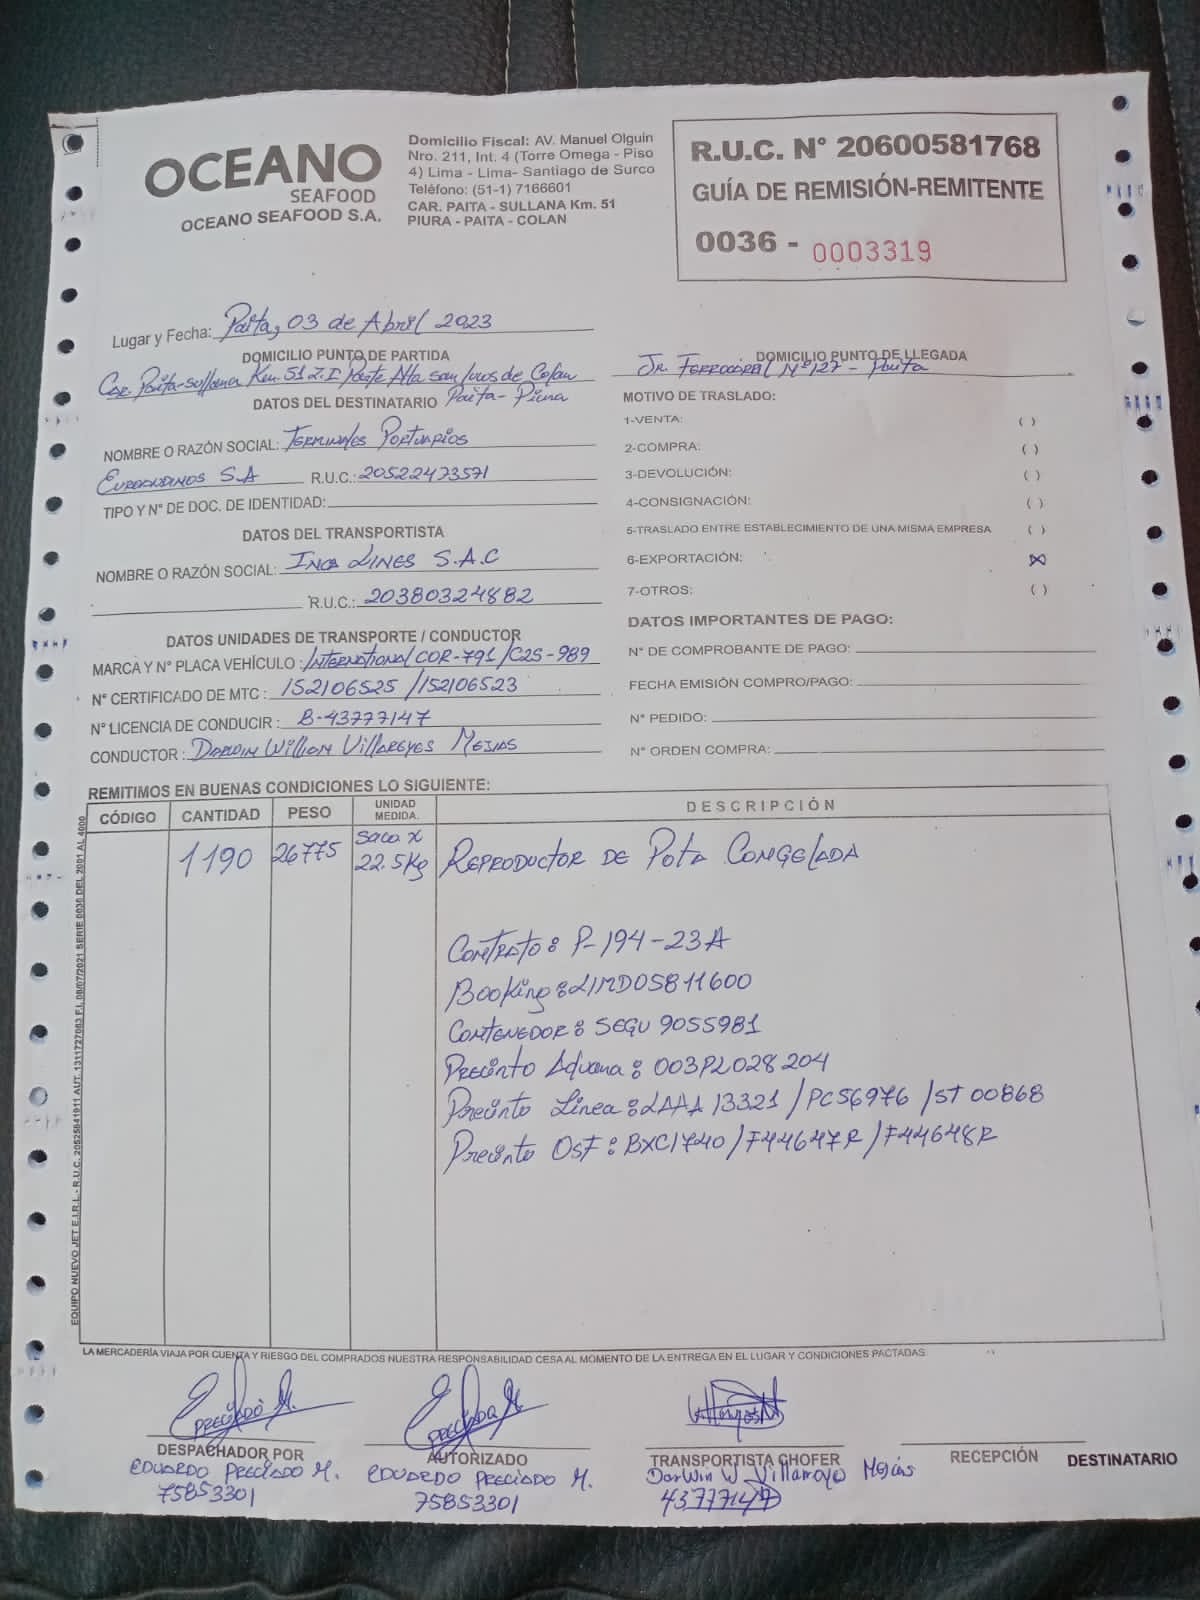 OCEANO
SEAFOOD
OCEANO SEAFOOD S.A.
Domicilio Fiscal: AV. Manuel Olguin
Nro. 211, Int. 4 (Torre Omega - Piso
4) Lima - Lima- Santiago de Surco
Teléfono: (51-1) 7166601
CAR. PAITA - SULLANA Km. 51
PIURA - PAITA - COLAN
R.U.C. N° 20600581768
GUÍA DE REMISIÓN-REMITENTE
0036 - 0003319
Lugar y Fecha: Paita, 03 de Abril 2023
DOMICILIO PUNTO DE PARTIDA
Car. Paita-sullana Km. 51 Z.I Parte Alta san lucas de Colan
Paita - Piura
DOMICILIO PUNTO DE LLEGADA
Jr. Ferrocarril Nº 127 - Paita
DATOS DEL DESTINATARIO
NOMBRE O RAZÓN SOCIAL: Terminales Portuarios
Euroandinos S.A R.U.C.: 20522473571
TIPO Y N° DE DOC. DE IDENTIDAD:
DATOS DEL TRANSPORTISTA
NOMBRE O RAZÓN SOCIAL: Inca Lines S.A.C
R.U.C.: 20380324882
DATOS UNIDADES DE TRANSPORTE / CONDUCTOR
MARCA Y N° PLACA VEHÍCULO : International COR-791 / C2S-989
N° CERTIFICADO DE MTC : 152106525 / 152106523
N° LICENCIA DE CONDUCIR : B-43777147
CONDUCTOR : Darwin William Villareyes Mejias
MOTIVO DE TRASLADO:
1-VENTA: ( )
2-COMPRA: ( )
3-DEVOLUCIÓN: ( )
4-CONSIGNACIÓN: ( )
5-TRASLADO ENTRE ESTABLECIMIENTO DE UNA MISMA EMPRESA ( )
6-EXPORTACIÓN: (X)
7-OTROS: ( )
DATOS IMPORTANTES DE PAGO:
N° DE COMPROBANTE DE PAGO:
FECHA EMISIÓN COMPRO/PAGO:
N° PEDIDO:
N° ORDEN COMPRA:
REMITIMOS EN BUENAS CONDICIONES LO SIGUIENTE:
CÓDIGO CANTIDAD PESO UNIDAD MEDIDA. DESCRIPCIÓN
1190 26775 Saca x 22.5Kg Reproductor de Pota Congelada
Contrato: P-194-23A
Booking: LIMD05811600
Contenedor: SEGU 9055981
Precinto Aduana: 003PL028204
Precinto Linea: LAAA 13321 / PC56976 / ST 00868
Precinto Osf: BXC1740 / F44647R / F44648R
EQUIPO NUEVO JET E.I.R.L. - R.U.C. 20525841911 AUT. 1311727083 F.I. 08/07/2021 SERIE 0036 DEL 2001 AL 4000
LA MERCADERÍA VIAJA POR CUENTA Y RIESGO DEL COMPRADOS NUESTRA RESPONSABILIDAD CESA AL MOMENTO DE LA ENTREGA EN EL LUGAR Y CONDICIONES PACTADAS
DESPACHADOR POR
Eduardo Preciado M.
75853301
AUTORIZADO
Eduardo Preciado M.
75853301
TRANSPORTISTA CHOFER
Darwin W. Villarreyes Mejias
43777147
RECEPCIÓN DESTINATARIO